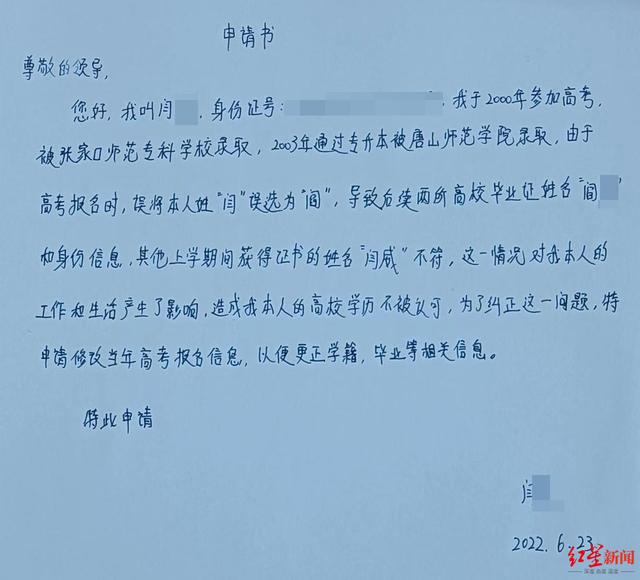 申请书
尊敬的领导,
您好,我叫闫 ,身份证号: ,我于2000年参加高考,
被张家口师范专科学校录取,2003年通过专升本被唐山师范学院录取,由于
高考报名时,误将本人姓"闫"误选为"阎",导致后续两所高校毕业证姓名"阎 "
和身份信息,其他上学期间获得证书的姓名"闫咸"不符,这一情况对我本人的
工作和生活产生了影响,造成我本人的高校学历不被认可,为了纠正这一问题,特
申请修改当年高考报名信息,以便更正学籍,毕业等相关信息。
特此申请
闫
2022.6.23
红星新闻
深度 态度 温度